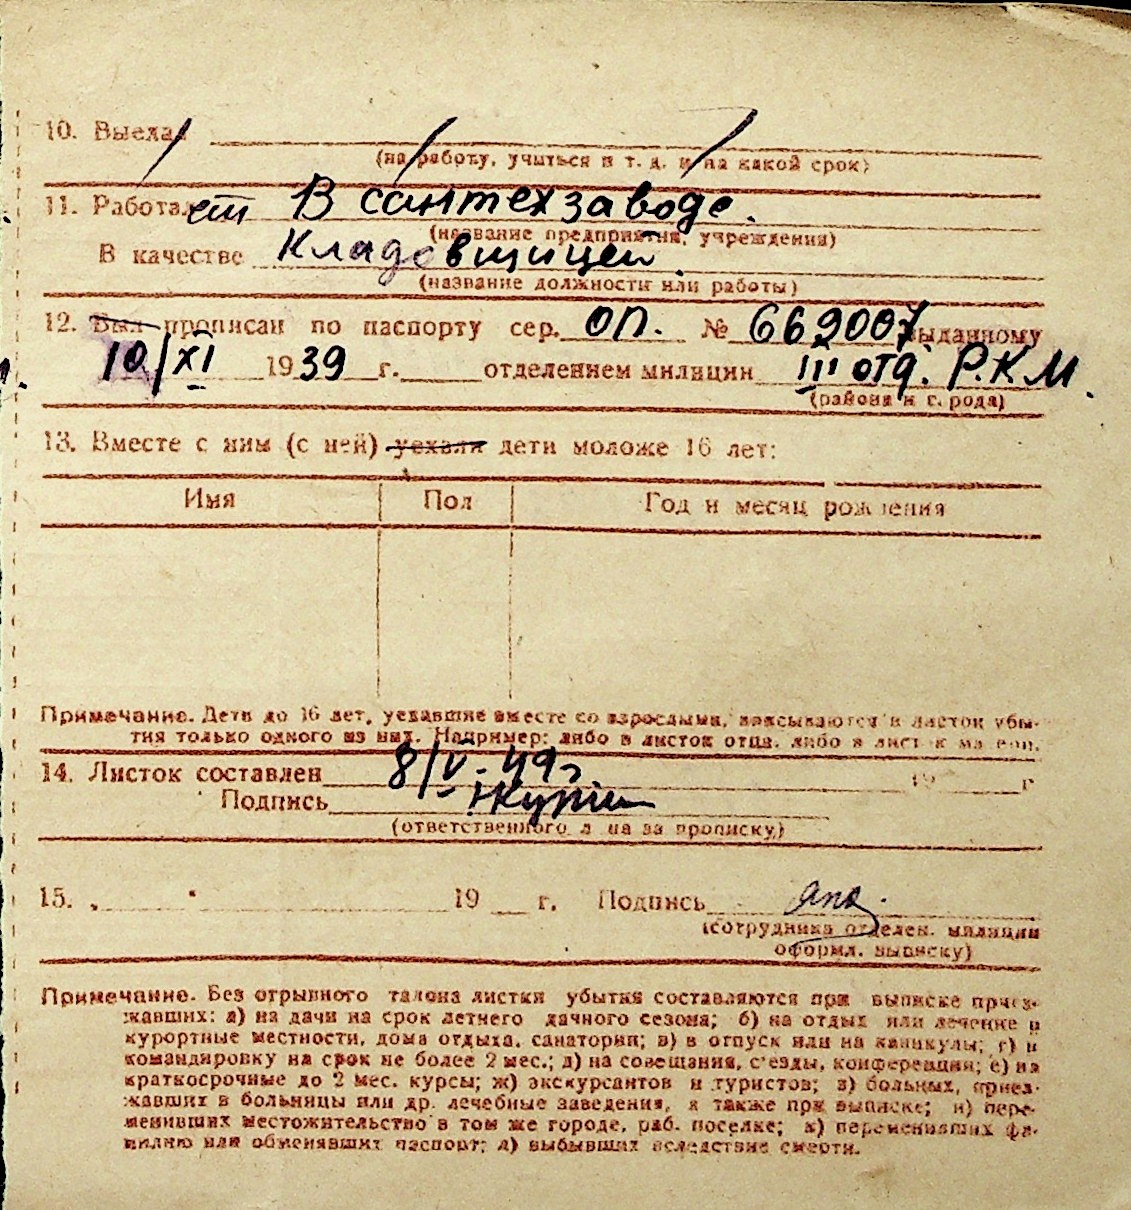 10. Выехал
(на работу, учиться и т. д. и на какой срок)
11. Работает В сантехзаводе.
(название предприятия, учреждения)
В качестве Кладовщицей.
(название должности или работы)
12. Был прописан по паспорту сер. ОП. № 669007 выданному
10/XI 1939 г. отделением милиции III отд. Р.К.М.
(района и города)
13. Вместе с ним (с ней) уехали дети моложе 16 лет:
Имя Пол Год и месяц рождения
Примечание. Дети до 16 лет, уехавшие вместе со взрослыми, вписываются в листок убы-
тия только одного из них. Например: либо в листок отца, либо в листок матери.
14. Листок составлен 8/V-49г. 19 г
Подпись
(ответственного лица за прописку)
15. „ " 19 г. Подпись
(сотрудника отделен. милиции
оформл. выписку)
Примечание. Без отрывного талона листки убытия составляются при выписке приез-
жавших: а) на дачи на срок летнего дачного сезона; б) на отдых или лечение в
курортные местности, дома отдыха, санатории; в) в отпуск или на каникулы; г) в
командировку на срок не более 2 мес.; д) на совещания, съезды, конференции; е) на
краткосрочные до 2 мес. курсы; ж) экскурсантов и туристов; з) больных, приез-
жавших в больницы или др. лечебные заведения, а также при выписке; и) пере-
менивших местожительство в том же городе, раб. поселке; к) переменивших фа-
милию или обменявших паспорт; л) выбывших вследствие смерти.